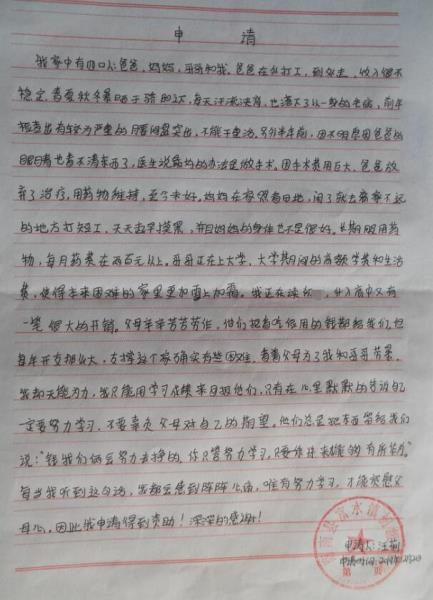 申 请
我家中有四口人:爸爸、妈妈,哥哥和我。爸爸在外打工,到处走。收入很不
稳定。春夏秋冬暴晒于
每天汗流浃背,也落下了一身的老病,前年
检查出有较为严重的腰间盘突出,不能干重活。另外半年前,因不明原因爸爸的
眼睛也看不清东西了,医生说最好的办法是做手术。因手术费用巨大,爸爸放
弃了治疗,用药物维持,至今未好。妈妈在家照看田地,闲了就去离家不远
的地方打短工,天天起早摸黑,并且妈妈的身体也不是很好。长期服用药
物,每月药费在两百元以上。哥哥正在上大学,大学期间的高额学费和生活
费,使得本来困难的家里更加雪上加霜。我正在读
一笔很大的开销。父母辛辛苦苦劳作,他们把省吃俭用的钱都给我们,但
每年开支都很大,支撑这个家确实有些困难,看着父母为了我和哥哥劳累,
我却无能为力,我只能用学习成绩来回报他们,只有在心里默默的告诉自己
一定要努力学习,不要辜负父母对自己的期望。他们总是把东西留给我们
说:“钱我们俩会努力去挣的,你只管努力学习,只要你将来能够有所
每当我听到这句话,我都会感到阵阵心痛,唯有努力学习,才能
父母心。因此我申请得到资助!深深的感谢!
申请人:汪
申请时间: